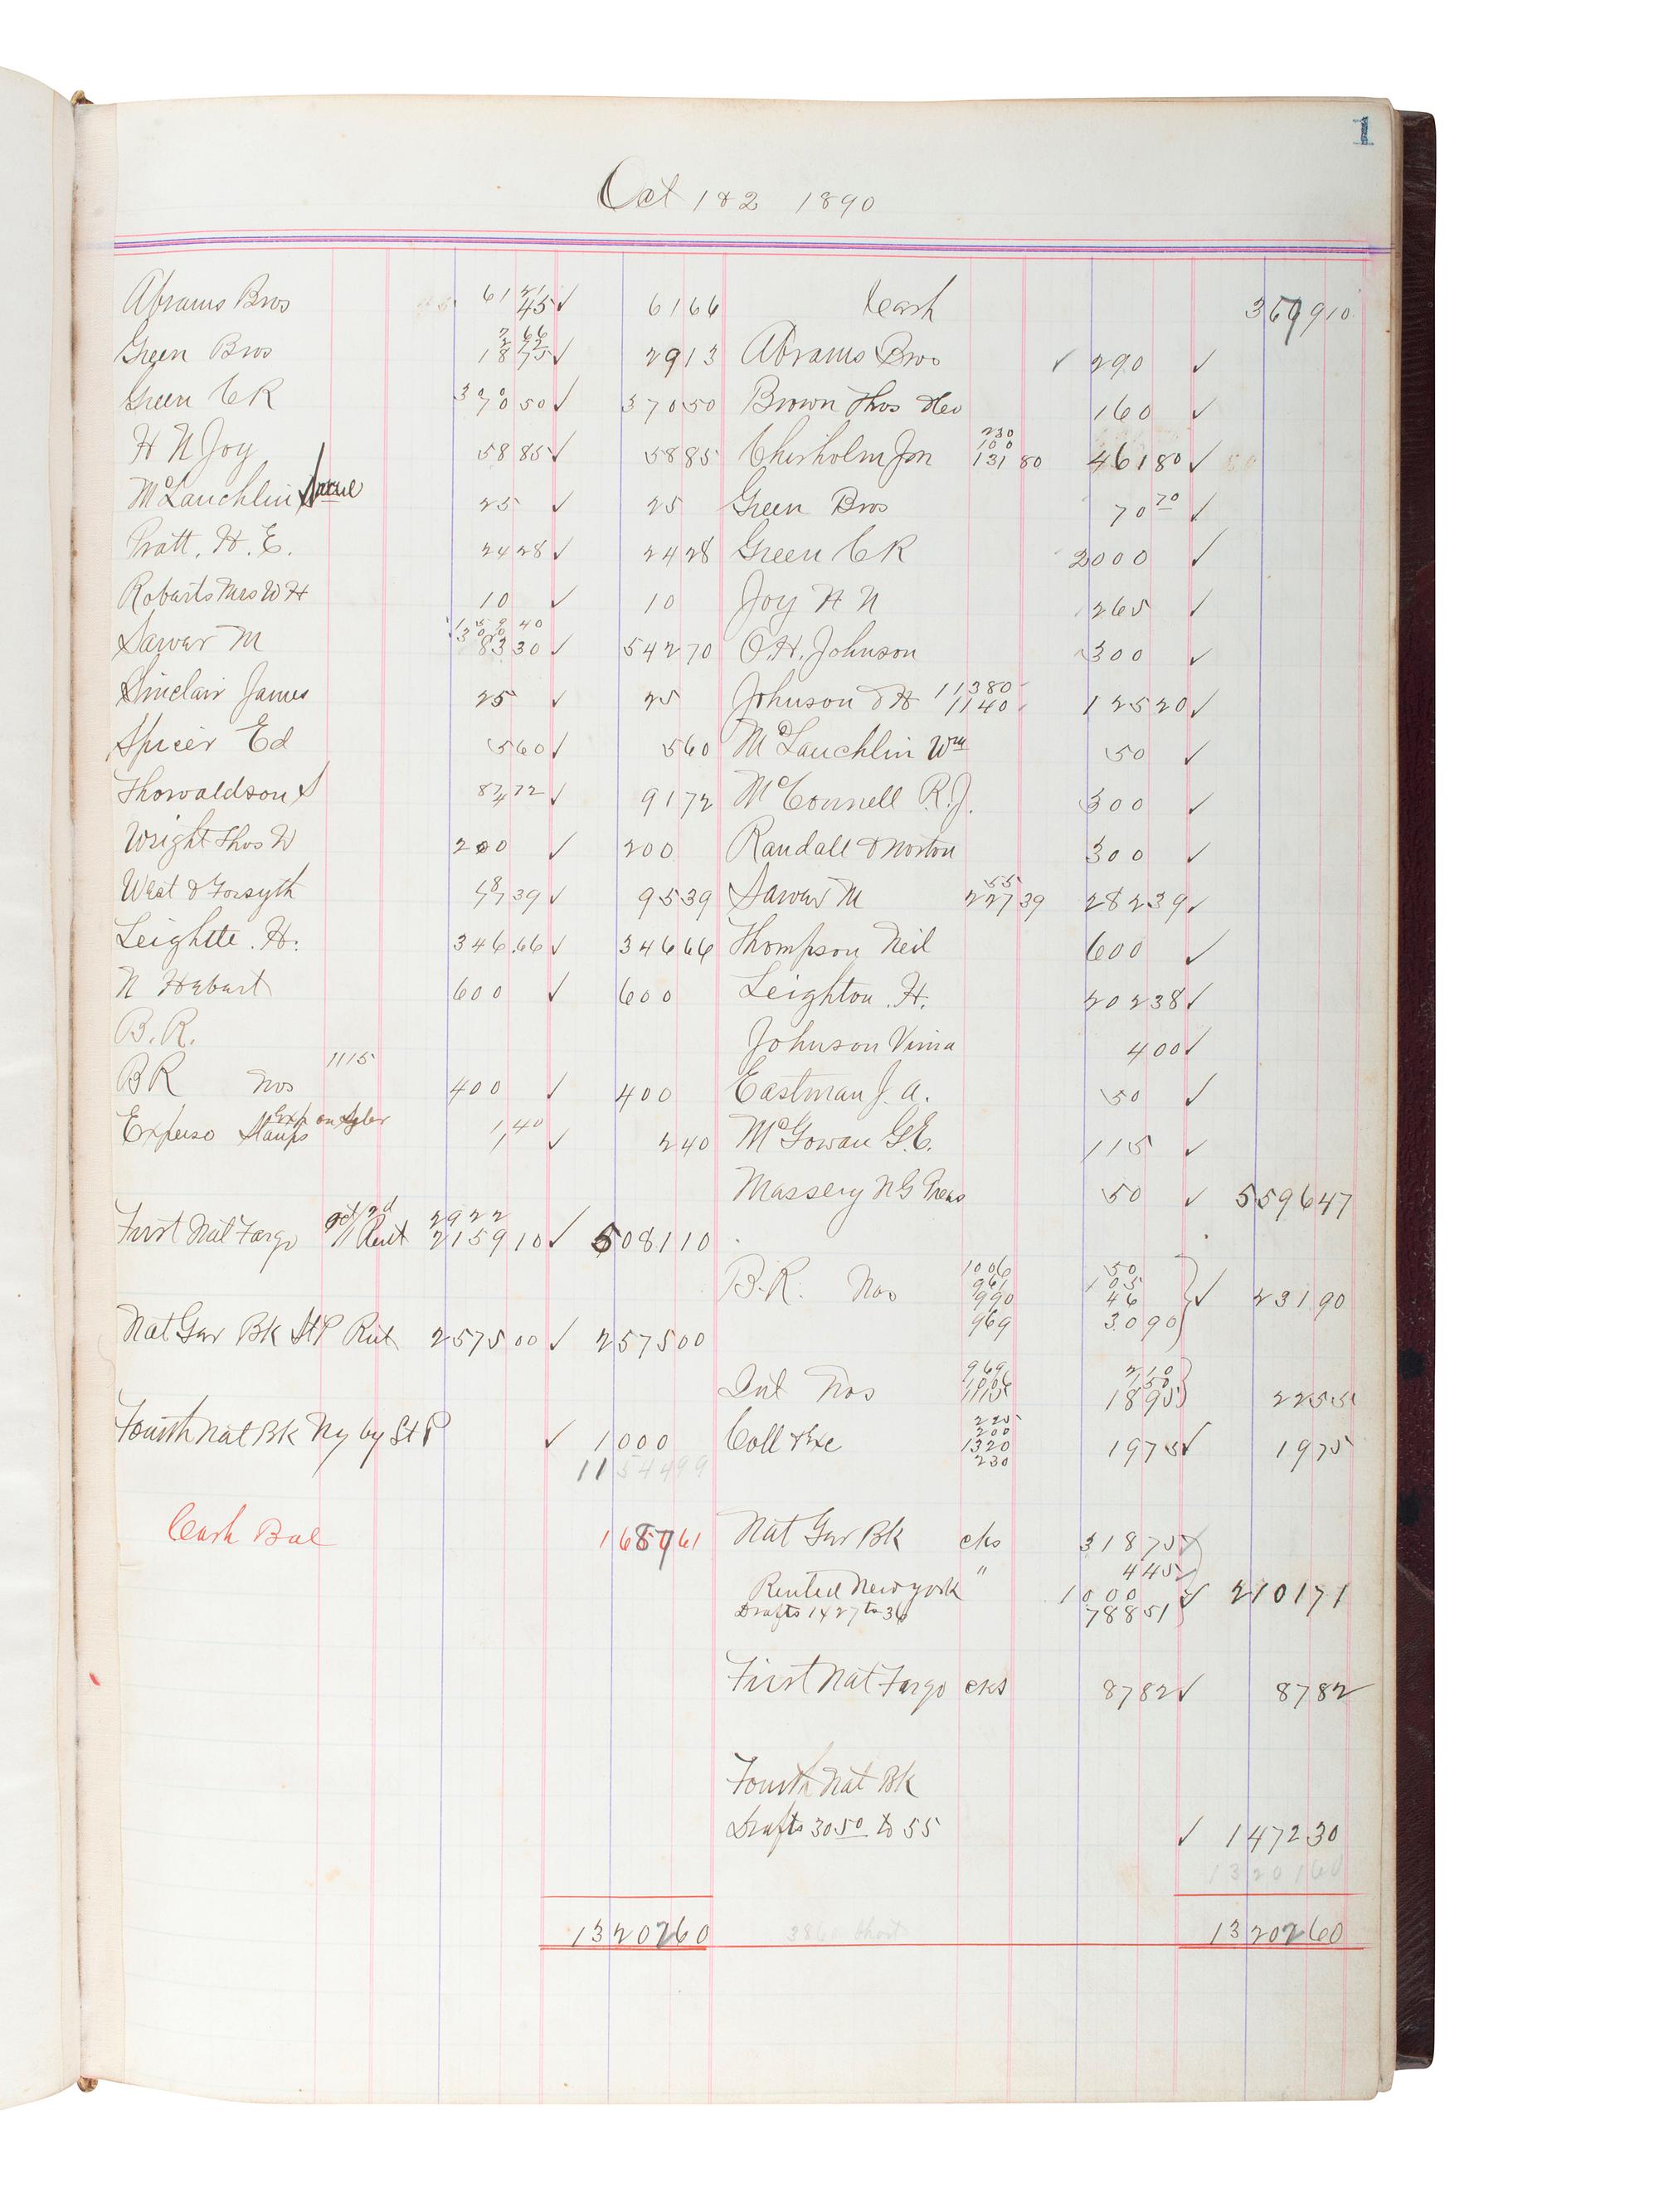 1
Oct 1 & 2 1890
Abrams Bros 61 21 45 ✓ 61 66 Cash 3679 10
Green Bros 7 66 2 72 18 75 ✓ 29 13 Abrams Bros ✓ 290 ✓
Green C R 370 50 ✓ 370 50 Brown Thos 160 ✓
H N Joy 58 85 ✓ 58 85 Chisholm Jon 230 100 131 80 461 80 ✓
McLauchlin 25 ✓ 25 Green Bros 70 70 ✓
Pratt. H. E. 24 28 ✓ 24 28 Green C R 2000 ✓
Robarts Mrs W H 10 ✓ 10 Joy H N 265 ✓
Sawar M 159 40 300 83 30 ✓ 542 70 O. H. Johnson 300 ✓
Sinclair James 25 ✓ 25 Johnson & H 113 80 11 40 125 20 ✓
Spicer Ed 5 60 ✓ 5 60 McLauchlin Wm 50 ✓
Thorvaldson S 87 72 4 ✓ 91 72 McConnell R. J. 300 ✓
Wright Thos W 200 ✓ 200 Randall & Norton 300 ✓
West & Forsyth 18 77 39 ✓ 95 39 Sawar M 55 227 39 282 39 ✓
Leighton. H. 346.66 ✓ 346 66 Thompson Neil 600 ✓
N Hebart 600 ✓ 600 Leighton. H. 202 38 ✓
B. R. Johnson Vina 4 00 ✓
B R Nos 1115 400 ✓ 400 Eastman J. A. 50 ✓
Expense Stamps Exp on 1 40 1 ✓ 2 40 McGowan G. E. 115 ✓
Massery N G Treas 50 ✓ 5596 47
First Nat Fargo Oct 1/2d Rmt 2922 2159 10 ✓ 5081 10
B. R. Nos 1006 961 990 969 50 105 46 30 90 ✓ 231 90
Nat Ger Bk St P Rmt 2575 00 ✓ 2575 00
Int Nos 969 1006 1115 2 10 1 50 18 95 22 55
Fourth Nat Bk Ny by St P ✓ 1000 Coll & Exc 225 200 1320 230 19 75 ✓ 19 75
11544 99
Cash Bal 1687 61 Nat Ger Bk cks 318 75
" 4 45
Remted New york 1000 ✓ 2101 71
Drafts 1427 to 36 788 51
First Nat Fargo cks 87 82 ✓ 87 82
Fourth Nat Bk
Drafts 3050 to 55 ✓ 1472 30
13201 60
13207 60 38 60 Short 13202 60